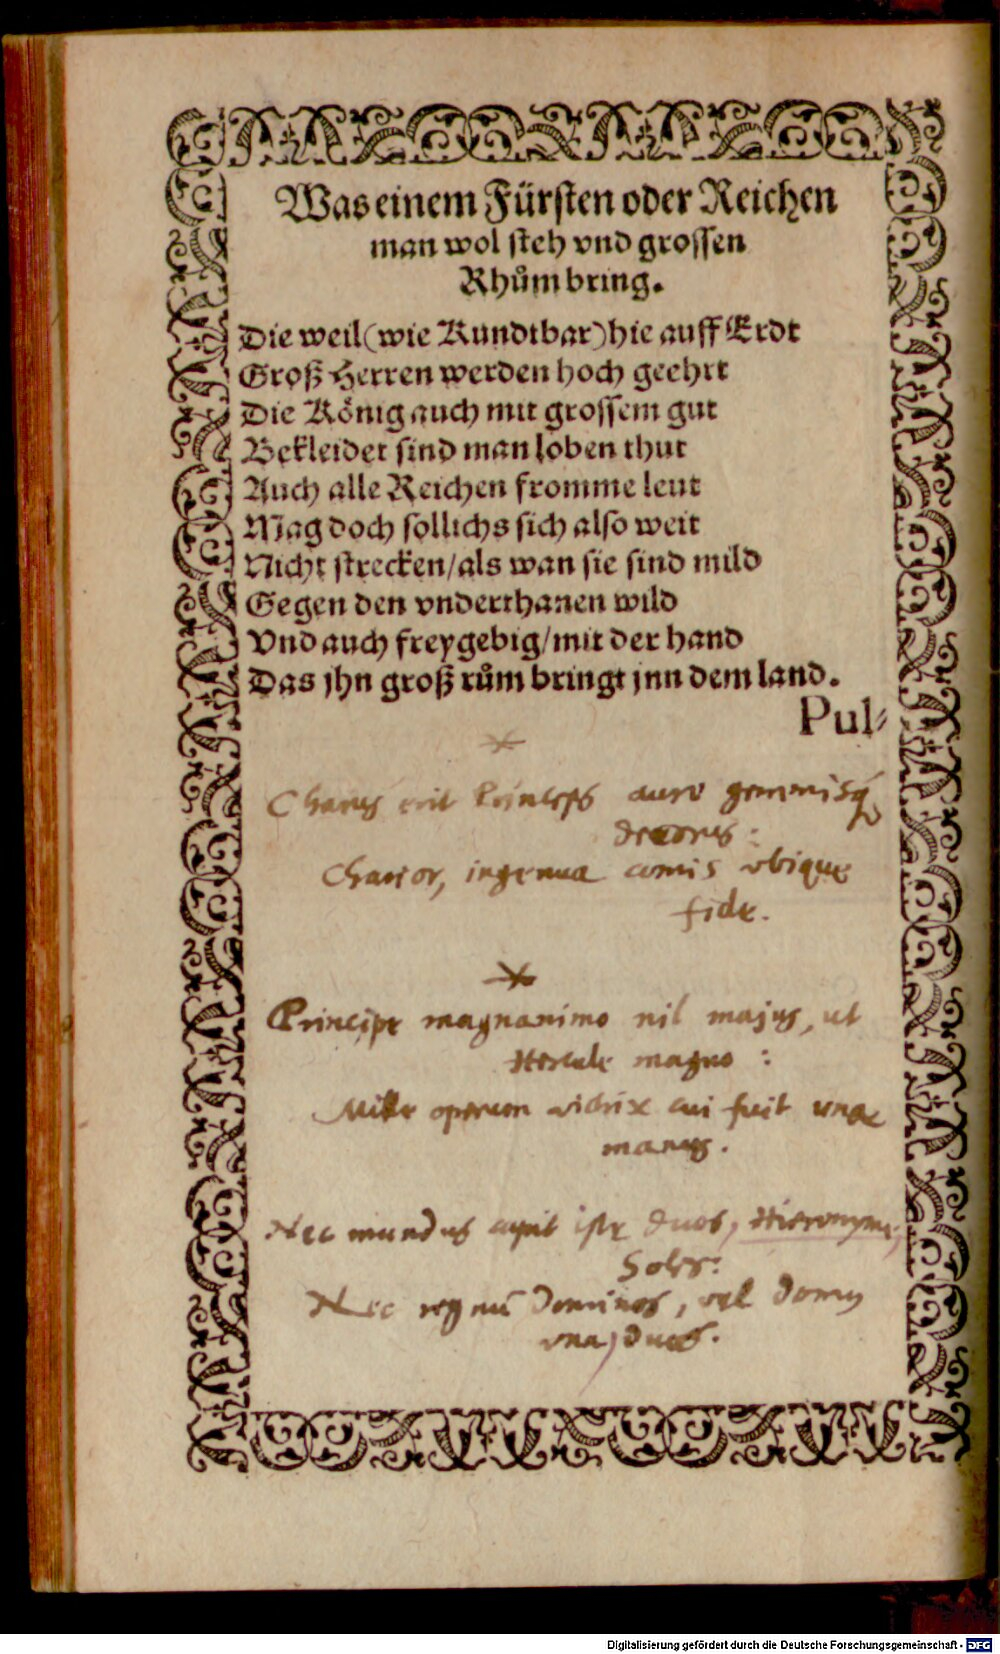 Was einem Fürsten oder Reichen
man wol steh vnd grossen
Rhům bring.
Die weil (wie Kundtbar) hie auff Erdt
Groß Herren werden hoch geehrt
Die König auch mit grossem gut
Bekleidet sind man loben thut
Auch alle Reichen fromme leut
Mag doch sollichs sich also weit
Nicht strecken/ als wan sie sind mild
Gegen den vnderthanen wild
Vnd auch freygebig/ mit der hand
Das jhn groß rům bringt jnn dem land.
Pul⸗
Charus erit Princeps auro gemmisq
decorus:
Charior, ingenua comis vbique
fide.
Principe magnanimo nil majus, ut
Hercule magno:
Mille operum victrix cui fuit una
manus.
Nec mundus capit iste duos, Hieronyme,
Soles:
Nec regnū Dominos, vel domus
vna, duos.
Digitalisierung gefördert durch die Deutsche Forschungsgemeinschaft - DFG